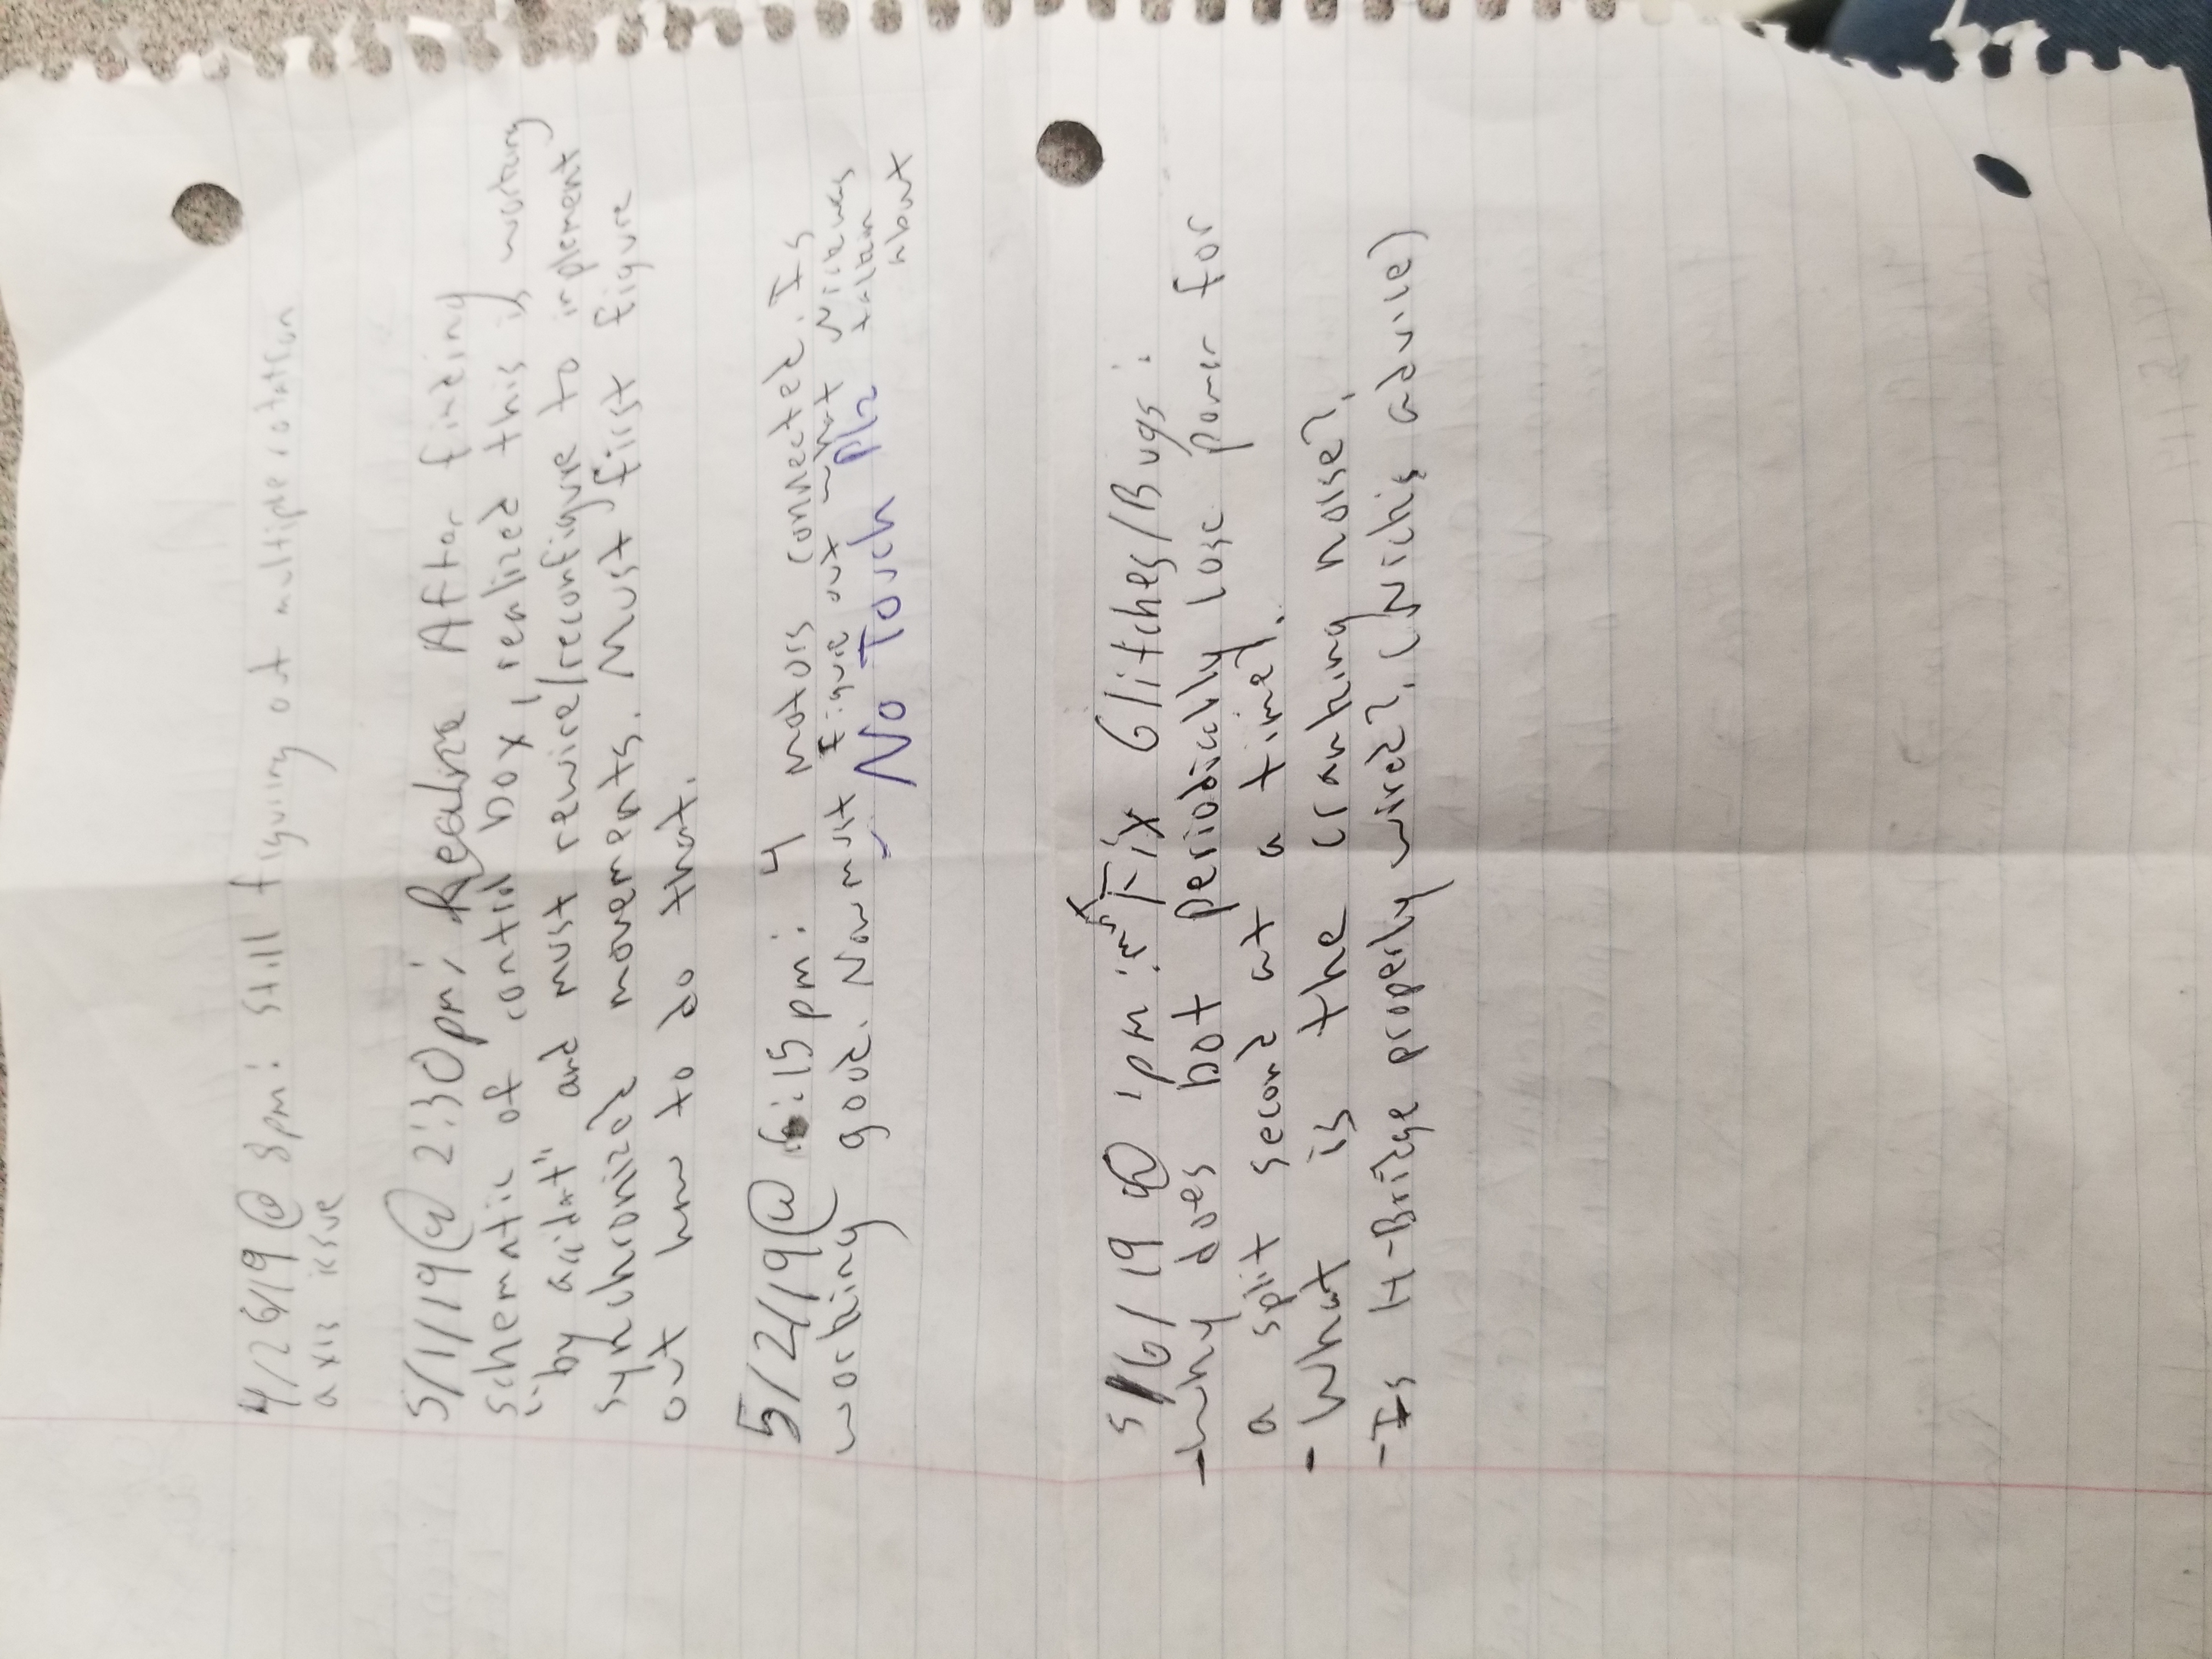 4/26/19 @ 8pm: Still figuring out multiple rotation
axis issue
5/1/19 @ 2:30pm: Realize After finding
schematic of control box, realized this is working
"by accident" and must rewire/reconfigure to implement
synchronized movements. Must first figure
out how to do that.
5/2/19 @ 6:15pm: 4 motors connected. Is
working good. Now must figure out what Nick was
talkin
about
- No Touch Plz
5/6/19 @ 1pm: must Fix Glitches/Bugs:
- Why does bot periodically lose power for
a split second at a time?.
- What is the cranking noise?.
- Is H-Bridge properly wired?. (Nick's advice)